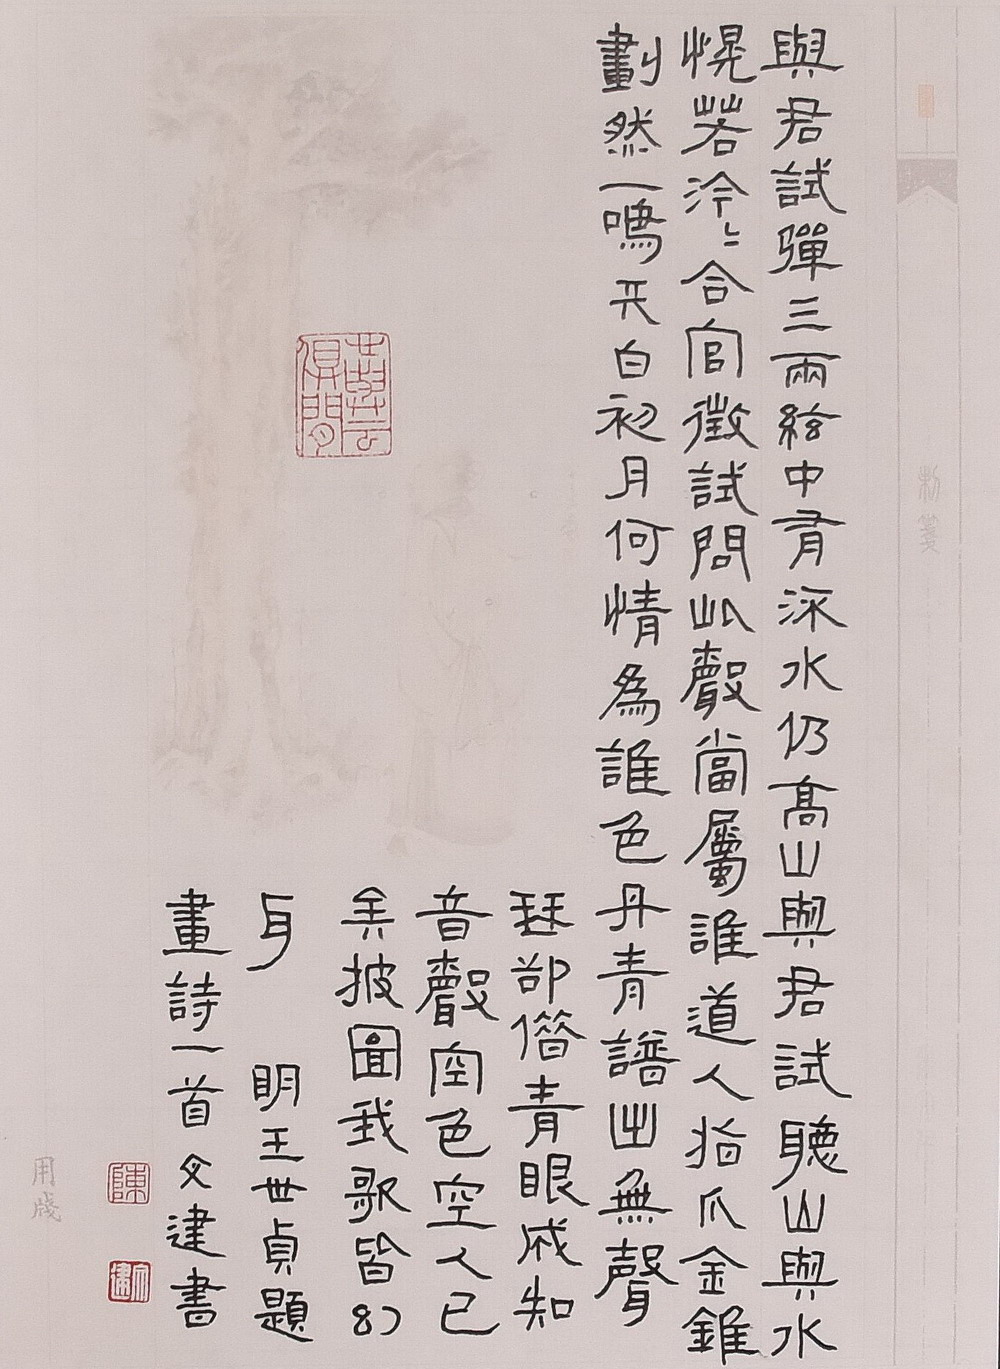 與君試彈三兩絃中有流水仍高山與君試聽山與水
愰若泠〻合宮徵試問此聲當屬誰道人指爪金錐
劃然一鳴天白初月何情為誰色丹青譜出無聲
琴卻借青眼成知
音聲空色空人已
矣披圖我歌皆幻
身 明王世貞題
畫詩一首文建書
陳
文建
用箋